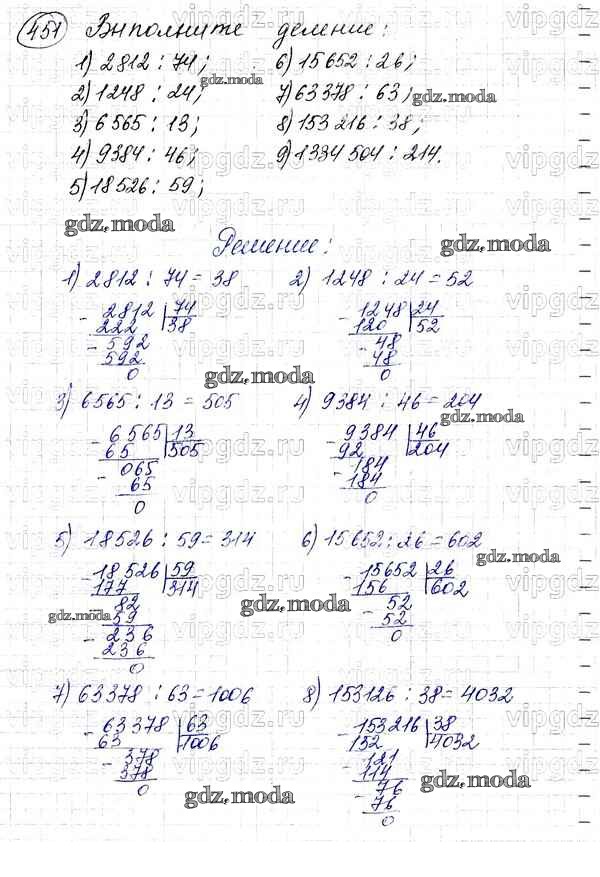 451 Выполните деление:
1) 2812 : 74; 6) 15652 : 26;
2) 1248 : 24; 7) 63378 : 63;
3) 6565 : 13; 8) 153216 : 38;
4) 9384 : 46; 9) 1334504 : 214.
5) 18526 : 59;
Решение:
1) 2812 : 74 = 38 2) 1248 : 24 = 52
- 2812 | 74 - 1248 | 24
222 | 38 120 | 52
- 592 - 48
592 48
0 0
3) 6565 : 13 = 505 4) 9384 : 46 = 204
- 6565 | 13 - 9384 | 46
65 | 505 92 | 204
- 065 - 184
65 184
0 0
5) 18526 : 59 = 314 6) 15652 : 26 = 602
- 18526 | 59 - 15652 | 26
177 | 314 156 | 602
- 82 - 52
59 52
- 236 0
236
0
7) 63378 : 63 = 1006 8) 153126 : 38 = 4032
- 63378 | 63 - 153216 | 38
63 | 1006 152 | 4032
- 378 - 121
378 114
0 - 76
76
0
gdz.moda
vipgdz.ru